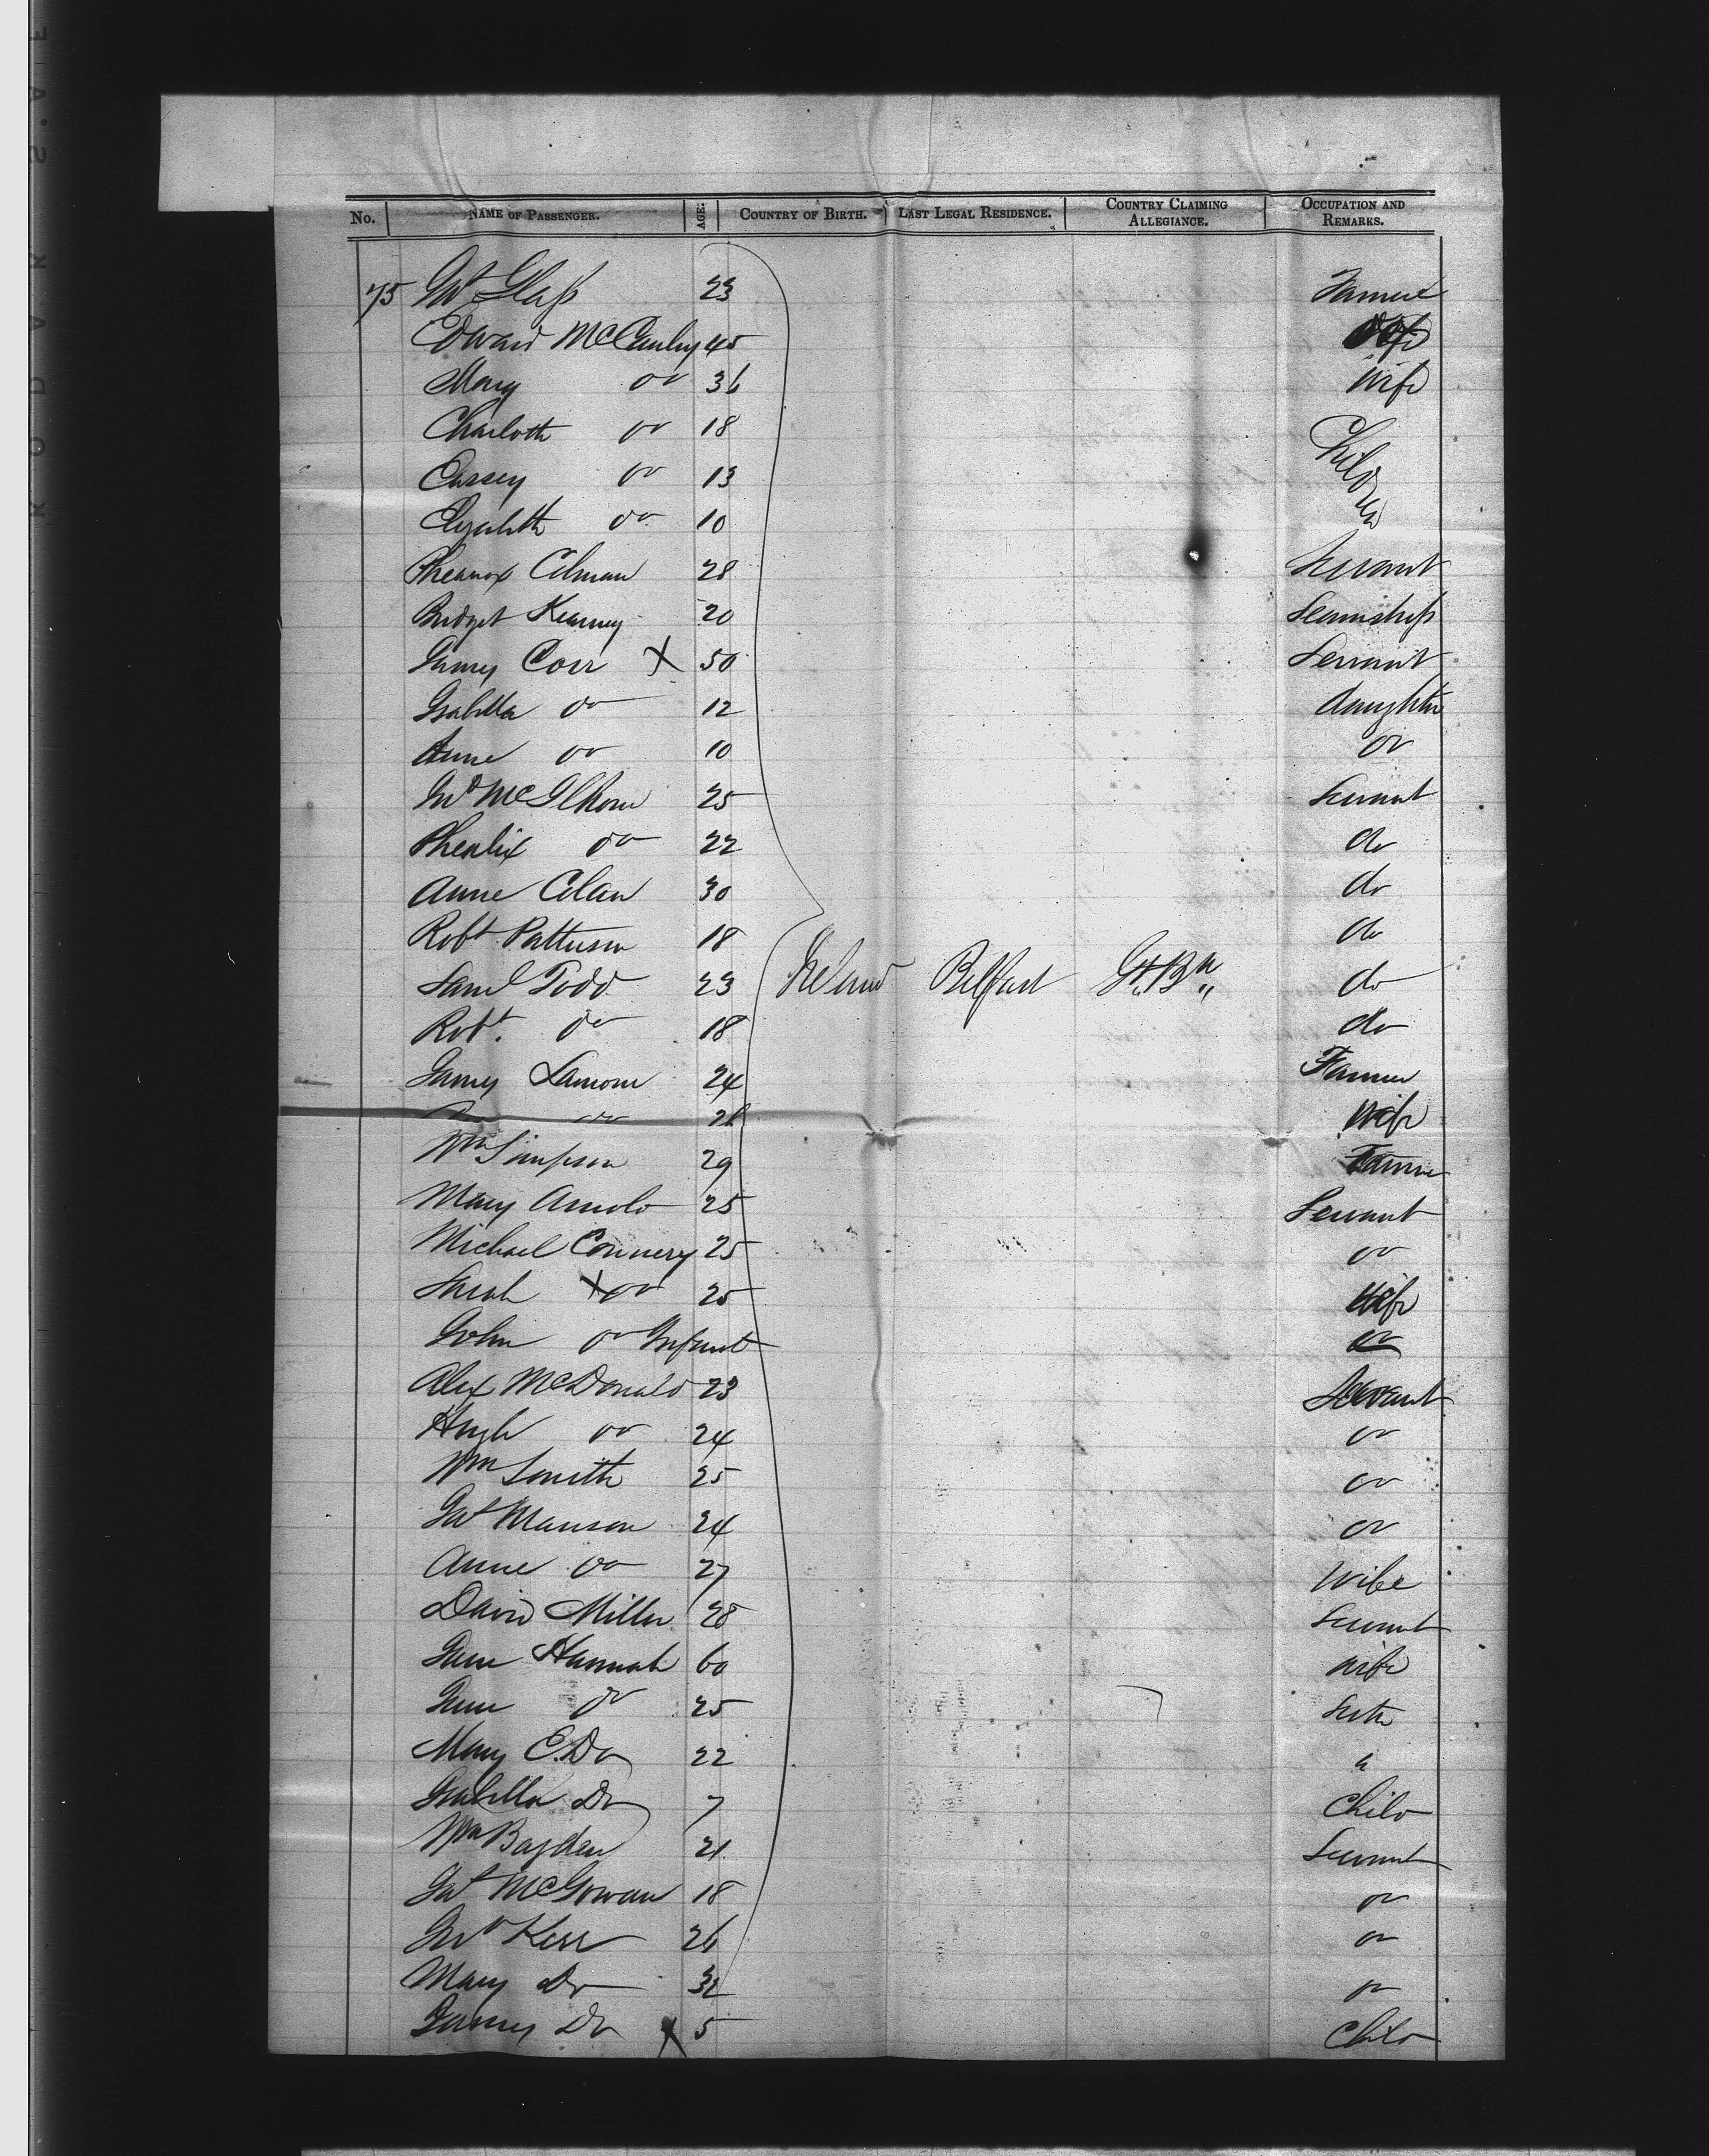 No. NAME OF PASSENGER. AGE. COUNTRY OF BIRTH. LAST LEGAL RESIDENCE. COUNTRY CLAIMING ALLEGIANCE. OCCUPATION AND REMARKS.
75 Glass 23 Farmer
Edward McCauley 45
Mary do 36 Wife
Charlotte do 18 Children
do 13
Elizabeth do 10
28 Servant
Bridget Kearney 20 Seamstress
James Corr X 50 Servant
Isabella do 12 daughter
Anne do 10 do
Jno 25 Servant
do 22 do
Anne 30 do
Robt Patterson 18 do
Saml Todd 23 Ireland Belfast Gt. Bn do
Robt. do 18 do
James Lamont 24 Farmer
do Wife
Wm Simpson 29 Farmer
Mary Arnold 25 Servant
Michael Connery 25 do
Sarah X do 25 Wife
John do Infant do
Alex McDonald 23 Servant
Hugh do 24 do
Wm Smith 25 do
Manson 24 do
Anne do 27 Wife
David Miller 28 Servant
Jane Hannah 60 wife
Jane do 25 Sister
Mary E. Do 22 "
Isabella Do 7 Child
Wm 21 Servant
McGowan 18 do
Jno Kerr 26 do
Mary Do 32 do
James Do X 5 Child